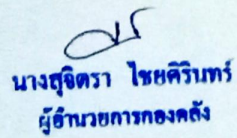 นางสุจิตรา ไชยศิรินทร์
ผู้อำนวยการกองคลัง